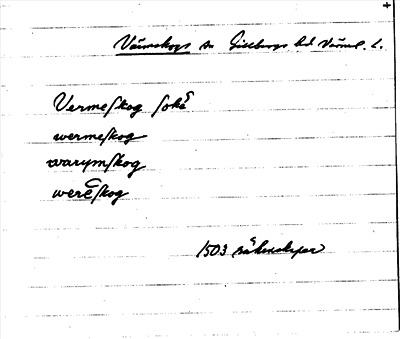 Värmskogs sn Gillbergs hd Värml. l.
Vermeſkog ſokñ
wermeſkog
warymſkog
wereſkog
1503 räkenskaper